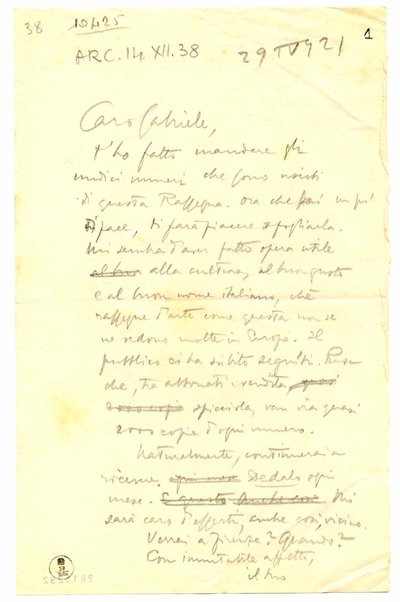 38
10425
1
ARC. 14. XII. 38
29 IV 921
Caro Gabriele,
t'ho fatto mandare gli
undici numeri che sono usciti
di questa Rassegna. Ora che hai un po'
di pace, ti farà piacere sfogliarla.
Mi sembra d'aver fatto opera utile
alla cultura, al buon gusto
e al buon nome italiano, chè
rassegne d'arte come questa non se
ne vedono molte in Europa. Il
pubblico ci ha subito seguiti.
che, tra abbonati e vendita quasi
2000 copie spicciola, van via quasi
2000 copie d'ogni numero.
Naturalmente, continuerai a
ricevere ogni mese Dedalo ogni
mese. E questo anche così Mi
sarà caro d'esserti, anche così, vicino.
Verrai a Firenze? Quando?
Con immutabile affetto,
il tuo